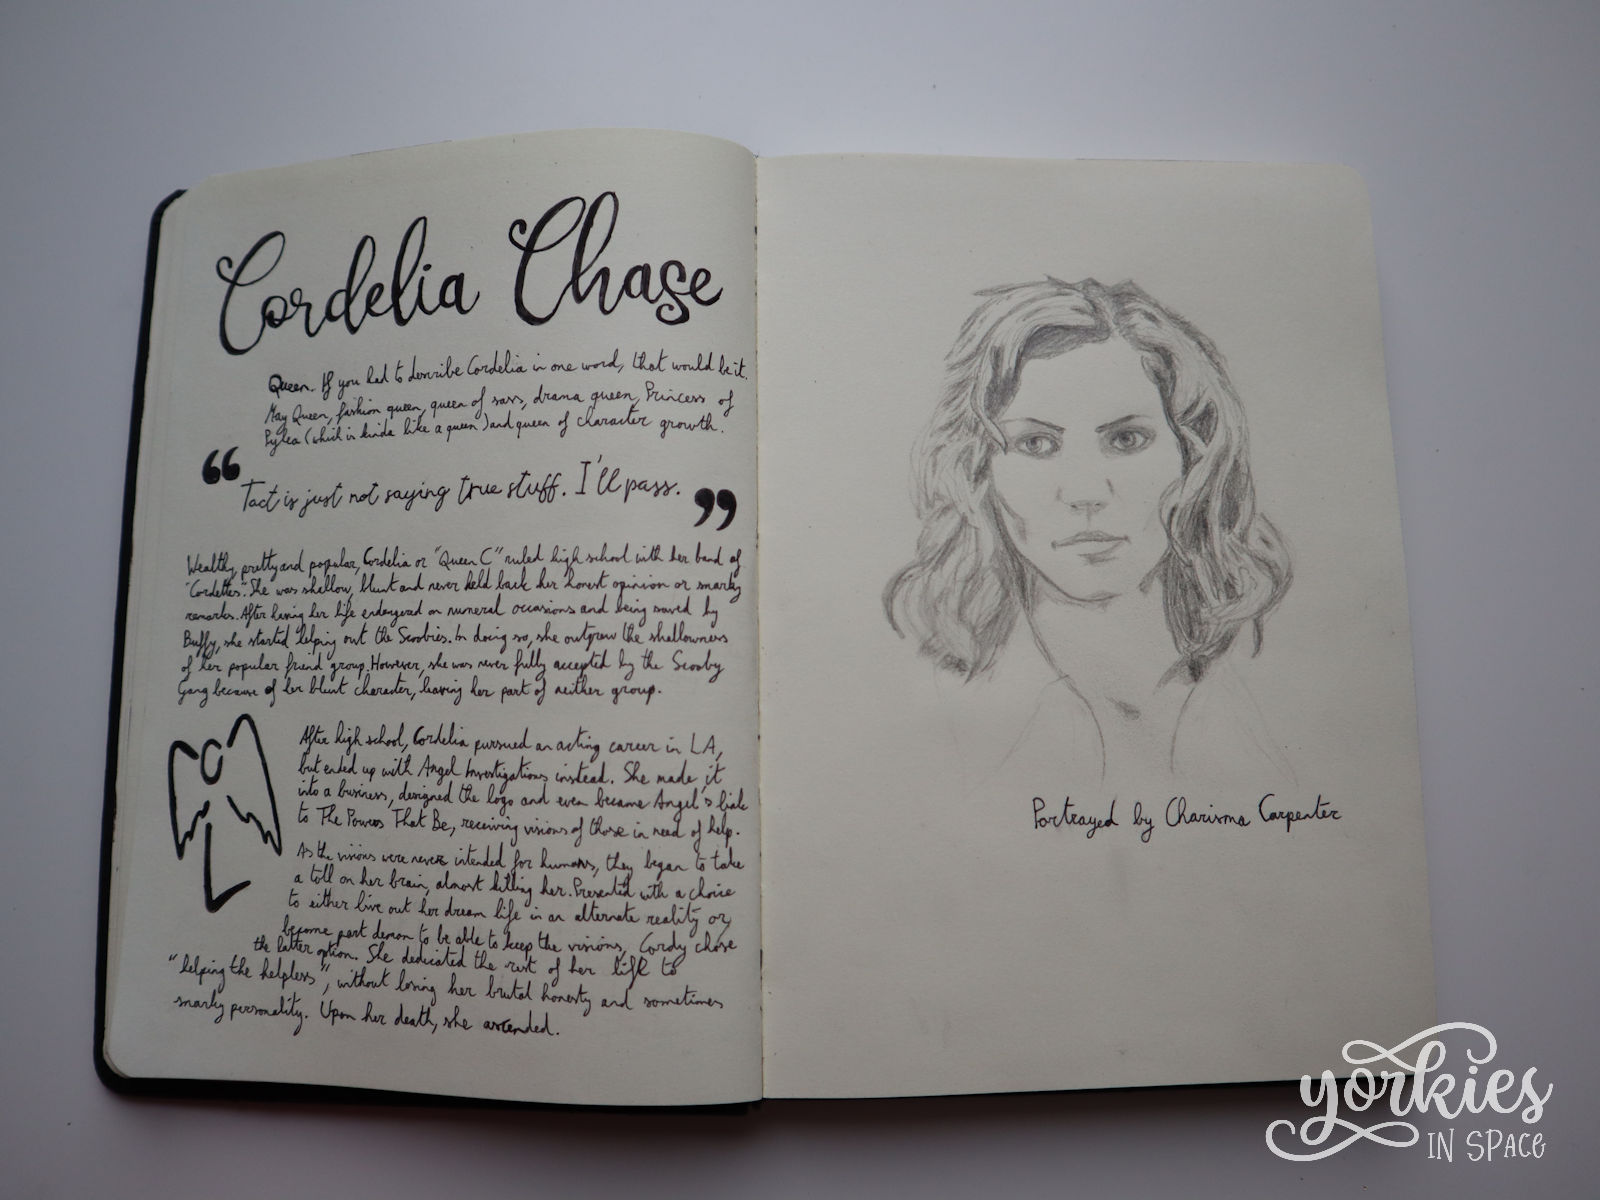 Cordelia Chase
Queen. If you had to describe Cordelia in one word, that would be it.
May Queen, fashion queen, queen of sass, drama queen, Princess of
Pylea (which is kinda like a queen) and queen of character growth.
“Tact is just not saying true stuff. I'll pass.”
Wealthy, pretty and popular, Cordelia or "Queen C" ruled high school with her band of
"Cordettes". She was shallow, blunt and never held back her honest opinion or snarky
remarks. After having her life endangered on numeral occasions and being saved by
Buffy, she started helping out the Scoobies. In doing so, she outgrew the shallowness
of her popular friend group. However, she was never fully accepted by the Scooby
Gang because of her blunt character, leaving her part of neither group.
After high school, Cordelia pursued an acting career in LA,
but ended up with Angel Investigations instead. She made it
into a business, designed the logo and even became Angel's link
to The Powers That Be, receiving visions of those in need of help.
As the visions were never intended for humans, they began to take
a toll on her brain, almost killing her. Presented with a choice
to either live out her dream life in an alternate reality or
become part demon to be able to keep the visions, Cordy chose
the latter option. She dedicated the rest of her life to
"helping the helpless", without losing her brutal honesty and sometimes
snarky personality. Upon her death, she ascended.
Portrayed by Charisma Carpenter
yorkies
IN SPACE